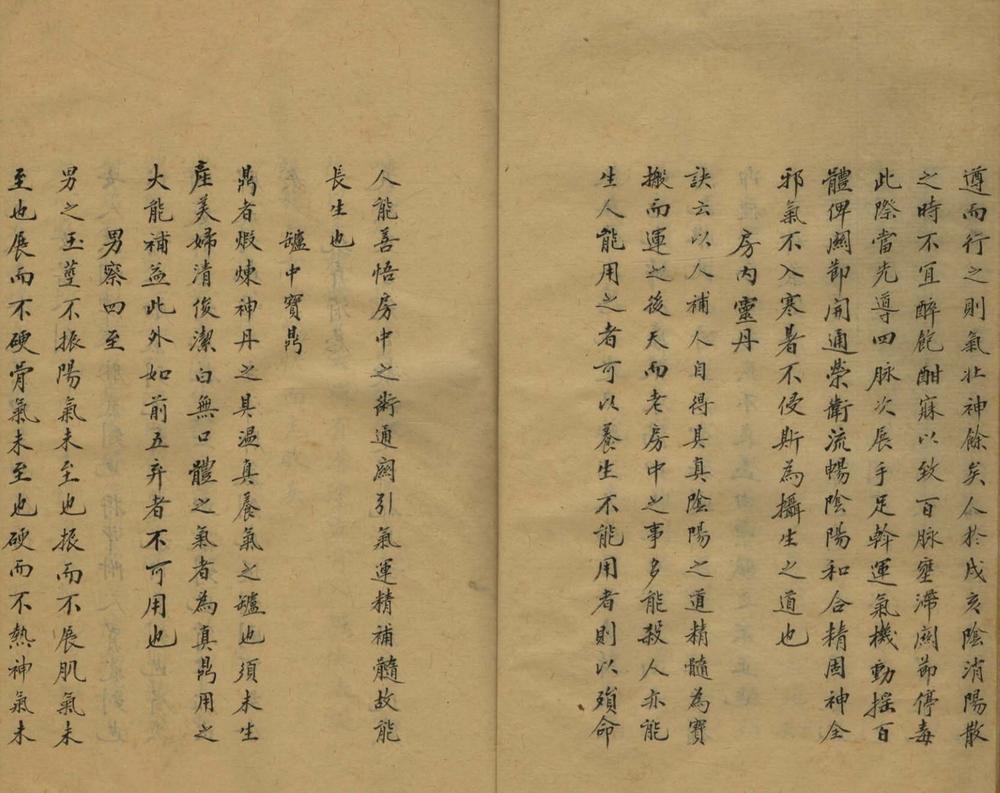 遵而行之則氣壯神餘矣人於戌亥陰消陽散
之時不宜醉飽酣寐以致百脉壅滯関節停毒
此際當先導四脉次展手足斡運氣機動摇百
體俾関節開通榮衛流暢陰陽和合精固神全
邪氣不入寒暑不侵斯為攝生之道也
房内靈丹
訣云以人補人自得其真陰陽之道精髓為寳
搬而運之後天而老房中之事多能殺人亦能
生人能用之者可以養生不能用者則以殞命
人能善悟房中之術通関引氣運精補髓故能
長生也
罏中寳鼎
鼎者煅煉神丹之具温真養氣之罏也須未生
産美婦清俊潔白無口體之氣者為真鼎用之
大能補益此外如前五弃者不可用也
男察四至
男之玉莖不振陽氣未至也振而不展肌氣未
至也展而不硬骨氣未至也硬而不熱神氣未